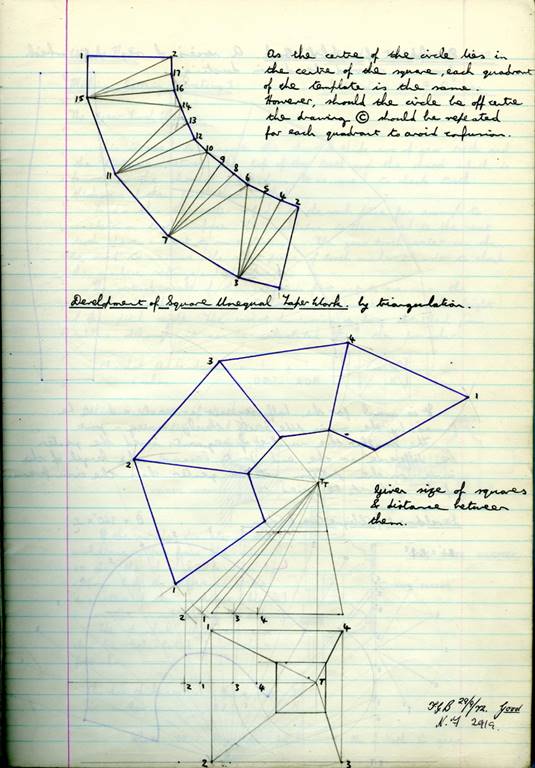 As the centre of the circle lies in
the centre of the square, each quadrant
of the template is the same.
However, should the circle be off centre
the drawing © should be repeated
for each quadrant to avoid confusion.
1 2
17
16
15
14
13
12
10
9
8
11
6
5
4
2
7
3
Development of Square Unequal Taper Work. by triangulation.
4
3
1
2
T
Given size of squares
& distance between
them.
1
2 1 3 4
1 4
2 1 3 4 T
Good
2 3
N. 2919.